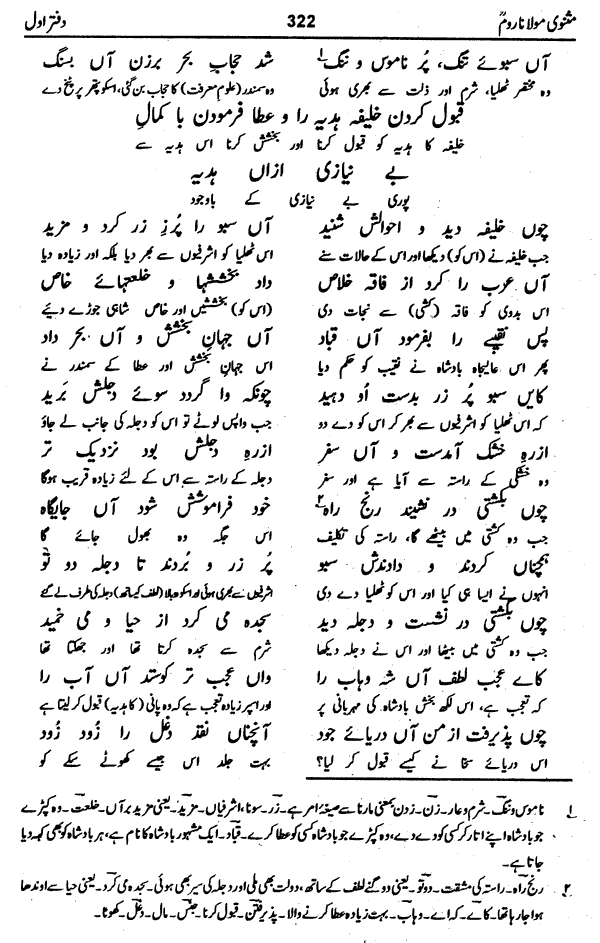 مثنوی مولانا رومؒ 322 دفتر اول
آں سبوئے تنگ، پُر ناموس و ننگ شد حجابِ بحر برزن آں بسنگ
وہ مختصر ٹھلیا، شرم اور ذلت سے بھری ہوئی وہ سمندر (علوم معرفت) کا حجاب بن گئی، اسکو پتھر پر پٹخ دے
قبول کردن خلیفہ ہدیہ را و عطا فرمودن با کمالِ
خلیفہ کا ہدیہ کو قبول کرنا اور بخشش کرنا اس ہدیہ سے
بے نیازی ازاں ہدیہ
پوری بے نیازی کے باوجود
چوں خلیفہ دید و احوالش شنید آں سبو را پُرز زر کرد و مزید
جب خلیفہ نے (اس کو) دیکھا اور اس کے حالات سنے اس ٹھلیا کو اشرفیوں سے بھر دیا بلکہ اور زیادہ دیا
آں عرب را کرد از فاقہ خلاص داد بخششہا و خلعتہائے خاص
اس بدوی کو فاقہ (کشی) سے نجات دی (اس کو) بخششیں اور خاص شاہی جوڑے دیئے
پس نقیبے را بفرمود آں قباد آں جہانِ بخشش و آں بحر داد
پھر اس عالیجاہ بادشاہ نے نقیب کو حکم دیا اس جہانِ بخشش اور عطا کے سمندر نے
کایں سبو پُر زر بدست اُو دہید چونکہ وا گردد سوئے دجلش برید
کہ اس ٹھلیا کو اشرفیوں سے بھر کر اس کو دے دو جب واپس لوٹے تو اس کو دجلہ کی جانب لے جاؤ
ازرہِ خشک آمدست و آں سفر ازرہِ دجلش بود نزدیک تر
وہ خشکی کے راستہ سے آیا ہے اور سفر دجلہ کے راستہ سے اس کے لئے زیادہ قریب ہوگا
چوں بکشتی در نشیند رنجِ راہ۲ خود فراموشش شود آں جایگاہ
جب وہ کشتی میں بیٹھے گا، راستہ کی تکلیف اس جگہ وہ بھول جائے گا
ہمچناں کردند و دادندش سبو پُر زر و بُردند تا دجلہ دو تُو
انہوں نے ایسا ہی کیا اور اس کو ٹھلیا دے دی اشرفیوں سے بھری ہوئی اور اسکو دجلہ (لطف کیساتھ) دجلہ کی طرف لے گئے
چوں بکشتی در نشست و دجلہ دید سجدہ می کرد از حیا و می خمید
جب وہ کشتی میں بیٹھا اور اس نے دجلہ دیکھا شرم سے سجدہ کرتا تھا اور جھکتا تھا
کاے عجب لطف آں شہ وہاب را واں عجب تر کوستد آں آب را
کہ تعجب ہے، اس لکھ بخش بادشاہ کی مہربانی پر اور اسپر زیادہ تعجب ہے کہ وہ پانی (کا ہدیہ) قبول کر لیتا ہے
چوں پذیرفت از من آں دریائے جود آنچناں نقد دغل را زُود زُود
اس دریائے سخا نے کیسے قبول کر لیا؟ بہت جلد اس جیسے کھوٹے سکے کو
۱ ناموس و ننگ۔ شرم و عار۔ زن۔ زدن بمعنی مارنا سے صیغۂ امر ہے۔ زر۔ سونا، اشرفیاں۔ مزید۔ یعنی مزید برآں۔ خلعت۔ وہ کپڑے
جو بادشاہ اپنے اتار کر کسی کو دے دے، وہ کپڑے جو بادشاہ کسی کو عطا کرے۔ قباد۔ ایک مشہور بادشاہ کا نام ہے، ہر بادشاہ کو بھی کہہ دیا
جاتا ہے۔
۲ رنج راہ۔ راستہ کی مشقت۔ دوتو۔ یعنی دوگنے لطف کے ساتھ، دولت بھی ملی اور دجلہ کی سیر بھی ہوئی۔ سجدہ می کرد۔ یعنی حیا سے اوندھا
ہوا جا رہا تھا۔ کاے۔ کہ اے۔ وہاب۔ بہت زیادہ عطا کرنے والا۔ پذیرفتن۔ قبول کرنا۔ جنس۔ مال۔ دغل۔ کھوٹا۔